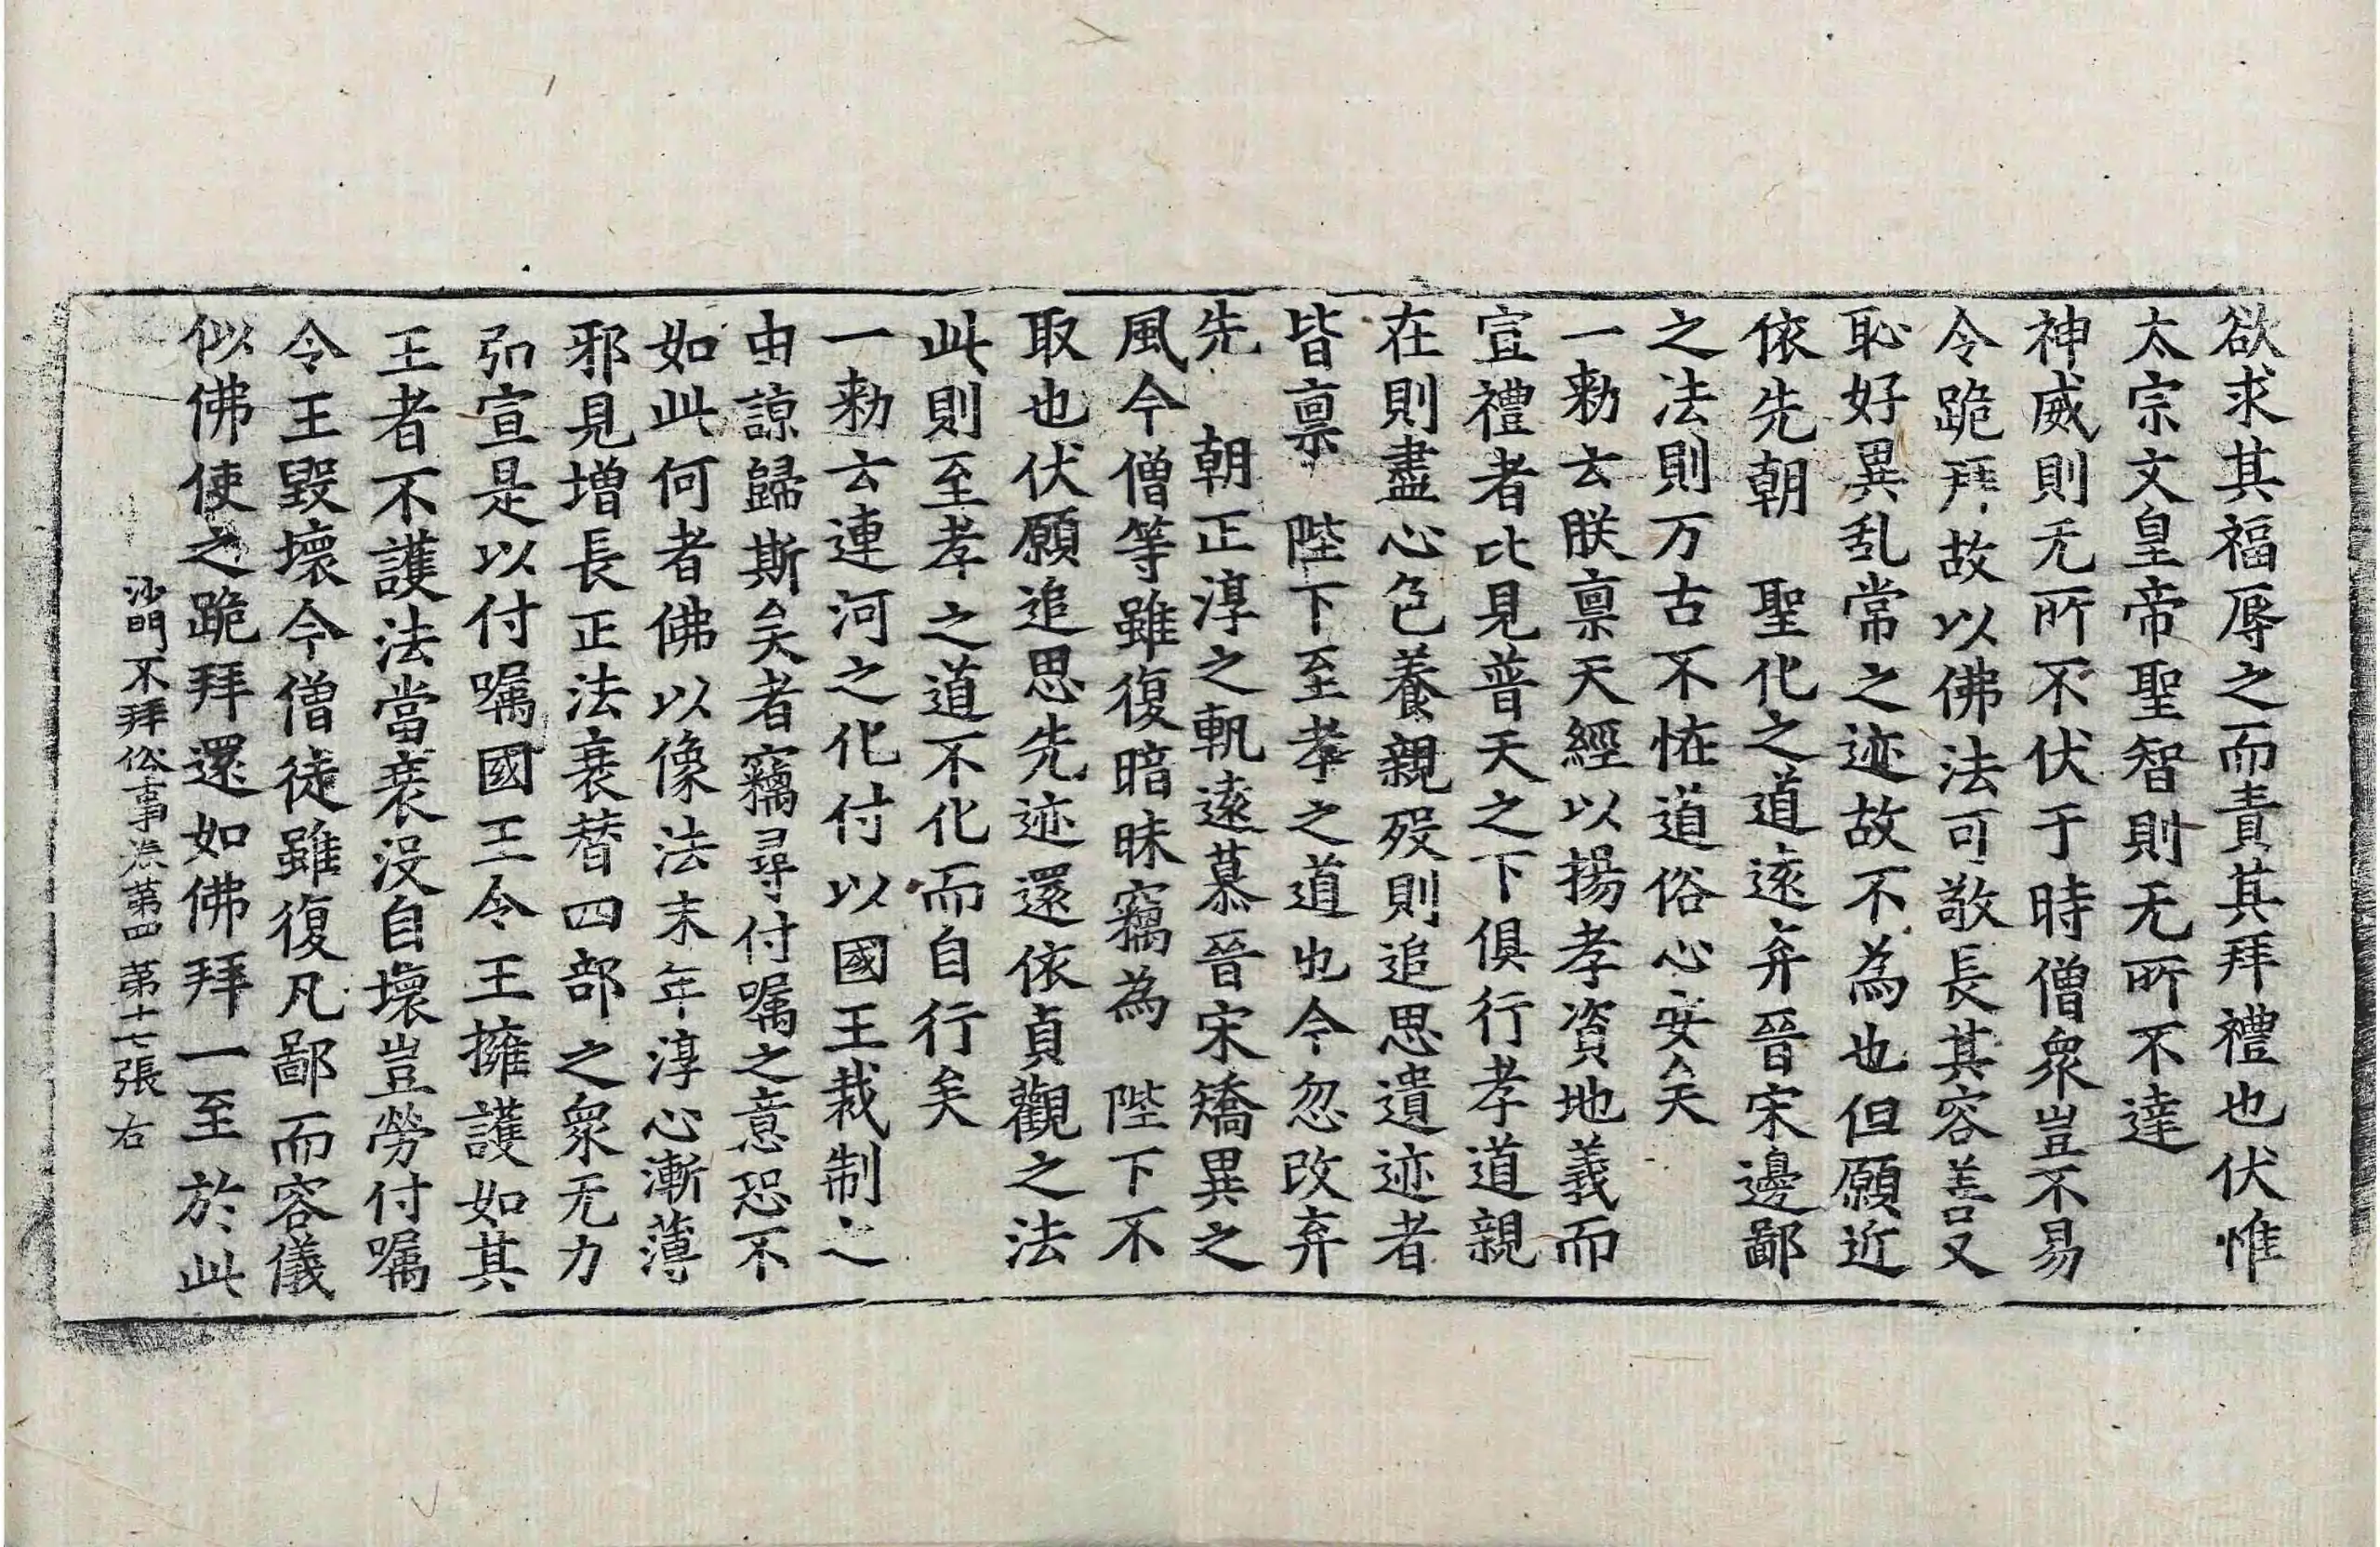 欲求其福辱之而責其拜禮也伏惟
太宗文皇帝聖智則无所不達
神威則无所不伏于時僧衆豈不易
令跪拜故以佛法可敬長其容善又
恥好異乱常之迹故不為也但願近
依先朝　聖化之道遠弃晉宋邊鄙
之法則万古不恠道俗心安矣
一勑云朕禀天經以揚孝資地義而
宣禮者比見普天之下俱行孝道親
在則盡心色養親歿則追思遺迹者
皆禀　陛下至孝之道也今忽改弃
先　朝正淳之軌遠慕晉宋矯異之
風今僧等雖復暗昧竊為　陛下不
取也伏願追思先迹還依貞觀之法
此則至孝之道不化而自行矣
一勑云連河之化付以國王裁制之
由諒歸斯矣者竊尋付囑之意恐不
如此何者佛以像法末年淳心漸薄
邪見增長正法衰替四部之衆无力
弘宣是以付囑國王令王擁護如其
王者不護法當衰没自壞豈勞付囑
令王毀壞今僧徒雖復凡鄙而容儀
似佛使之跪拜還如佛拜一至於此
沙門不拜俗事卷第四　第十七張　右